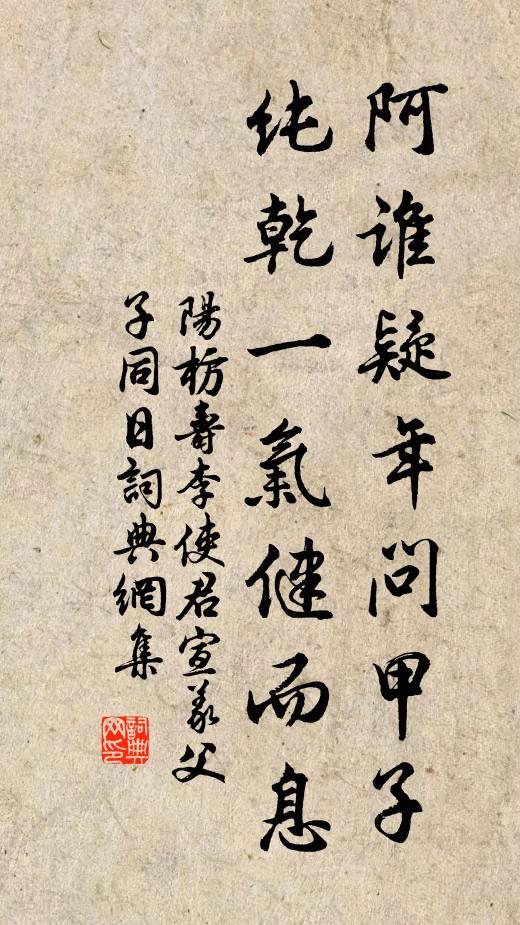 阿誰疑年問甲子
純乾一氣健而息
陽枋壽李使君宣義父
子同日詞典網集
詞典
网印